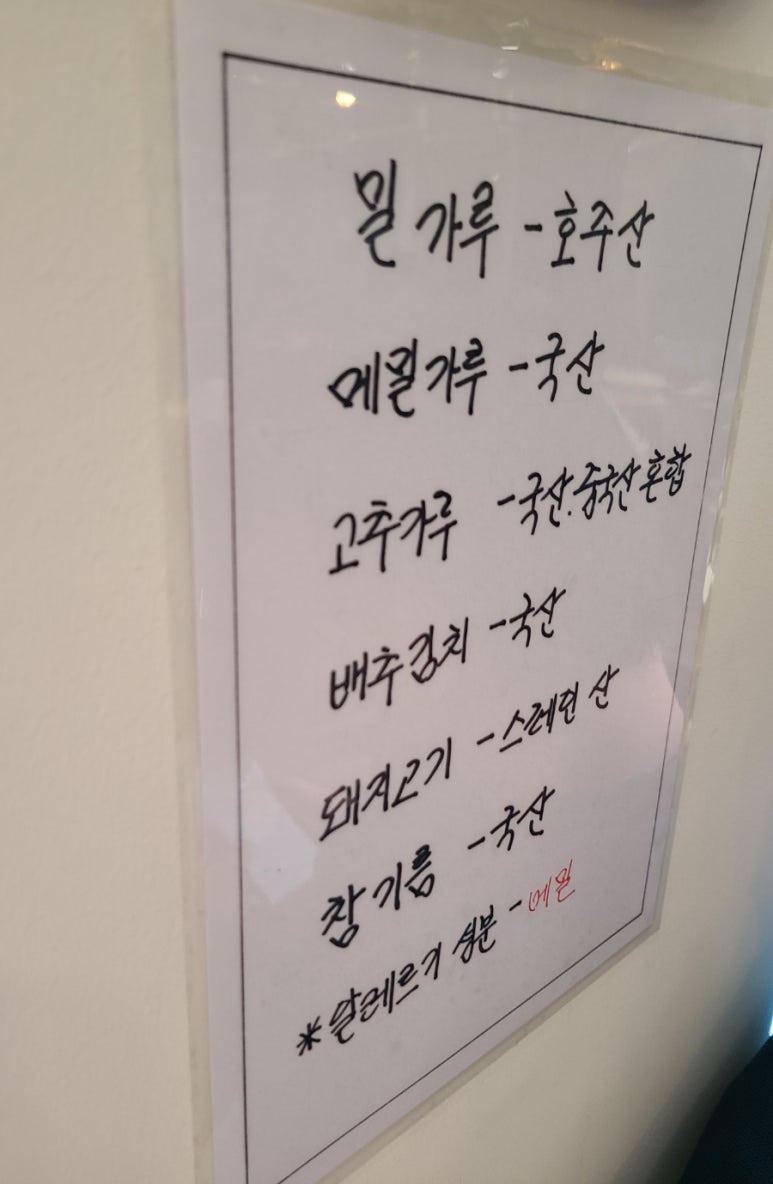 밀가루 - 호주산
메밀가루 - 국산
고추가루 - 국산. 중국산 혼합
배추김치 - 국산
돼지고기 - 스페인 산
참기름 - 국산
* 알레르기 성분 - 메밀